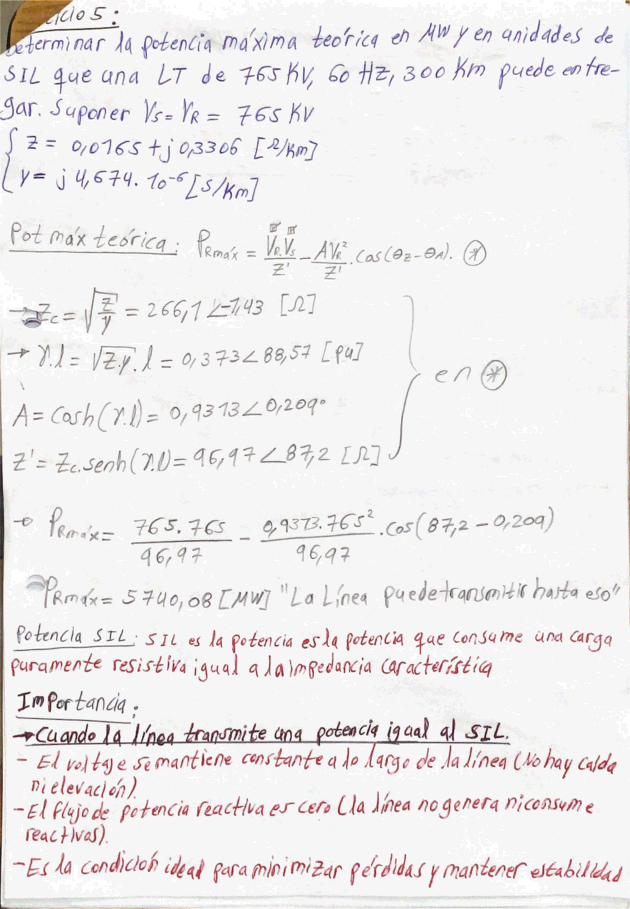 ciclo 5:
Determinar la potencia máxima teórica en MW y en unidades de
SIL que una LT de 765 KV, 60 Hz, 300 Km puede entre-
gar. Suponer Vs = VR = 765 KV
z = 0,0165 + j 0,3306 [Ω/Km]
y = j 4,674 · 10⁻⁶ [S/Km]
Pot máx teórica: PRmáx = VR Vs / Z' - AVR² / Z' · cos(θz - θA). *
→ Zc = √(z/y) = 266,1 ∠-1,43 [Ω]
→ γ.l = √(z.y) . l = 0,373 ∠88,57 [pu]
en *
A = Cosh(γ.l) = 0,9313 ∠0,209°
Z' = Zc. senh(γ.l) = 96,97 ∠87,2 [Ω]
→ PRmáx = 765.765 / 96,97 - 0,9313.765² / 96,97 · cos(87,2 - 0,209)
PRmáx = 5740,08 [MW] "La Línea puede transmitir hasta eso"
Potencia SIL: SIL es la potencia es la potencia que consume una carga
puramente resistiva igual a la impedancia característica
Importancia:
→ Cuando la línea transmite una potencia igual al SIL.
- El voltaje se mantiene constante a lo largo de la línea (No hay caída
ni elevación).
- El flujo de potencia reactiva es cero (la línea no genera ni consume
reactivas).
- Es la condición ideal para minimizar pérdidas y mantener estabilidad